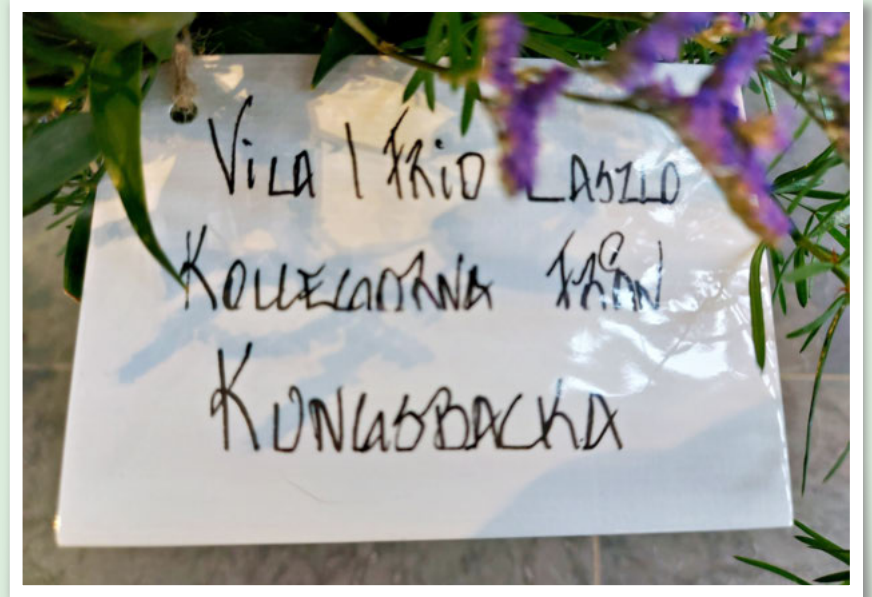 VILA I FRID LASZLO
KOLLEGORNA FRÅN
KUNGSBACKA